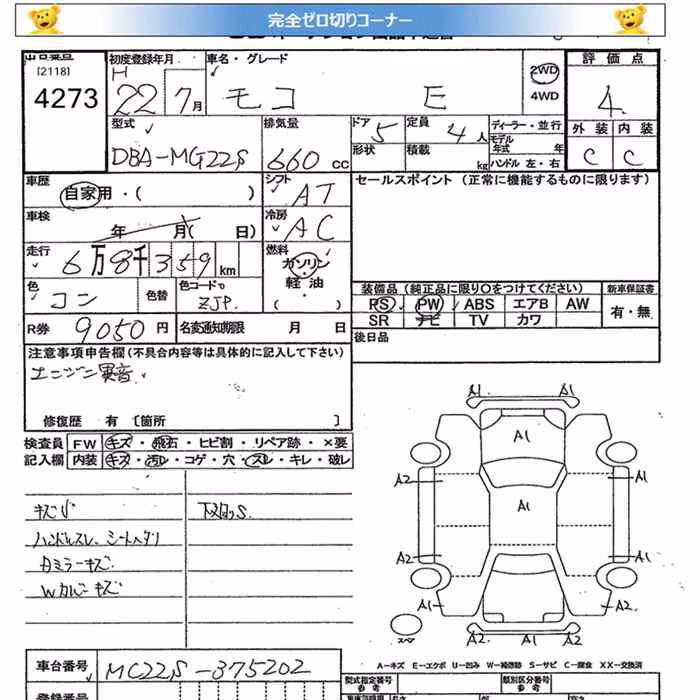 完全ゼロ切りコーナー
[2118]
4273
初度登録年月
H 22 7月
車名・グレード
モコ E
2WD
4WD
評価点
4
外装 内装
C C
型式
DBA-MG22S
排気量
660 cc
ドア 5
形状
定員 4人
積載 kg
ディーラー・並行
モデル
年式 年
ハンドル 左・右
車歴
自家用・( )
シフト
AT
セールスポイント (正常に機能するものに限ります)
車検
年 月( 日)
冷房
AC
走行
6万8千359km
燃料
ガソリン
軽油
( )
色
コン
色替
色コードNo
ZJP
装備品 (純正品に限り○をつけてください)
新車保証書
PS PW ABS エアB AW
SR ナビ TV カワ
有・無
R券 9050円
名変通知期限 月 日
後日品
注意事項申告欄(不具合内容等は具体的に記入して下さい)
エンジン異音
修復歴 有 〔箇所 〕
検査員
記入欄
FW キズ・飛石・ヒビ割・リペア跡・×要
内装 キズ・汚レ・コゲ・穴・スレ・キレ・破レ
キズ小
ハンドルスレ、シートヘタリ
下回りS
A1 A1
A1
A2 A1
A1
A2 A1
A1 A2
A2 A2
スペア
A-キズ E-エクボ U-凹み W-補修跡 S-サビ C-腐食 XX-交換済
車台番号
MG22S-375202
型式指定番号
参考
類別区分番号
参考
登録番号